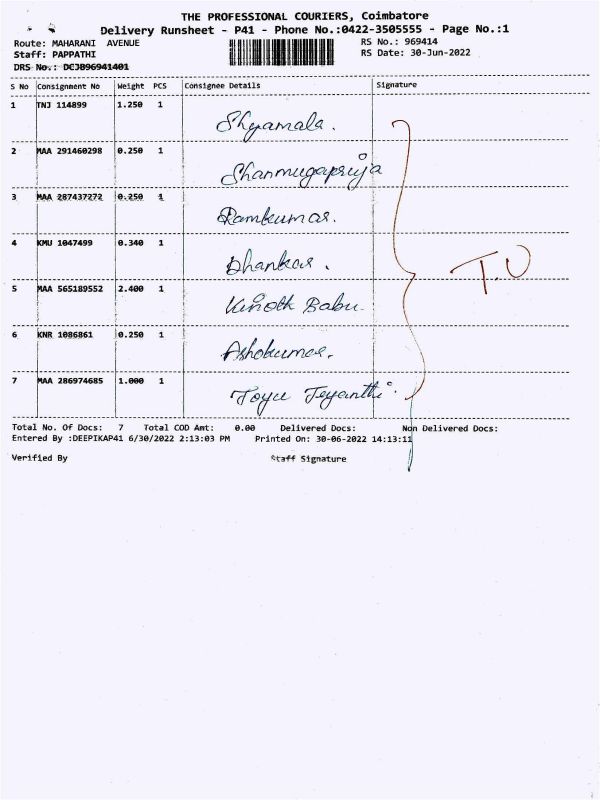 THE PROFESSIONAL COURIERS, Coimbatore
Delivery Runsheet - P41 - Phone No.:0422-3505555 - Page No.:1
Route: MAHARANI AVENUE RS No.: 969414
Staff: PAPPATHI RS Date: 30-Jun-2022
DRS No.: DCJB96941401
S No Consignment No Weight PCS Consignee Details Signature
1 TNJ 114899 1.250 1 Shyamala.
2 MAA 291460298 0.250 1 Shanmugapriya
3 MAA 287437272 0.250 1 Ramkumar.
4 KMU 1047499 0.340 1 Dhankar.
T.O
5 MAA 565189552 2.400 1 Vinoth Babu.
6 KNR 1086861 0.250 1 Ashokumar.
7 MAA 286974685 1.000 1 Jeyanthi.
Total No. Of Docs: 7 Total COD Amt: 0.00 Delivered Docs: Non Delivered Docs:
Entered By :DEEPIKAP41 6/30/2022 2:13:03 PM Printed On: 30-06-2022 14:13:11
Verified By Staff Signature